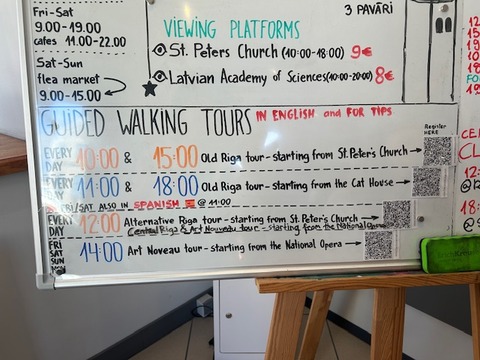 Fri-Sat
9.00-19.00
cafes 11.00-22.00
Sat-Sun
flea market
9.00-15.00
3 PAVĀRI
VIEWING PLATFORMS
St. Peters Church (10:00-18:00) 9€
Latvian Academy of Sciences (10:00-20:00) 8€
GUIDED WALKING TOURS IN ENGLISH and FOR TIPS
Register HERE
EVERY DAY 10:00 & 15:00 Old Riga tour - starting from St. Peter's Church
EVERY DAY 11:00 & 18:00 Old Riga tour - starting from the Cat House
FRI/SAT ALSO IN SPANISH @ 11:00
EVERY DAY 12:00 Alternative Riga tour - starting from St. Peter's Church
Central Riga & Art Nouveau tour - starting from the National Opera
FRI SAT SUN MON 14:00 Art Noveau tour - starting from the National Opera